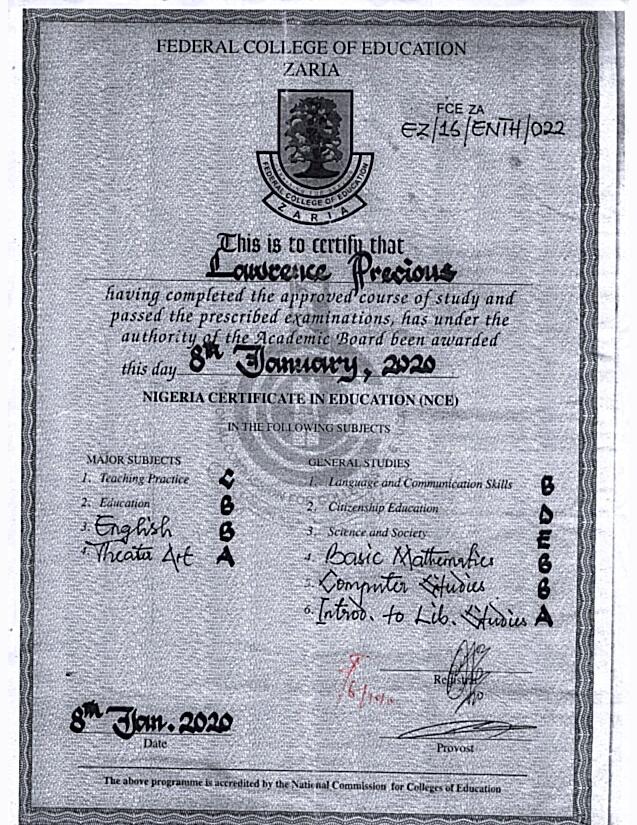 FEDERAL COLLEGE OF EDUCATION
ZARIA
FCE ZA
EZ/16/ENTH/022
FEDERAL COLLEGE OF EDUCATION
ZARIA
This is to certify that
Lawrence Precious
having completed the approved course of study and
passed the prescribed examinations, has under the
authority of the Academic Board been awarded
this day 8th January, 2020
NIGERIA CERTIFICATE IN EDUCATION (NCE)
IN THE FOLLOWING SUBJECTS
MAJOR SUBJECTS
1. Teaching Practice C
2. Education B
3. English B
4. Theatre Art A
GENERAL STUDIES
1. Language and Communication Skills B
2. Citizenship Education D
3. Science and Society E
4. Basic Mathematics B
5. Computer Studies B
6. Introd. to Lib. Studies A
Registrar
8th Jan. 2020
Date
Provost
The above programme is accredited by the National Commission for Colleges of Education